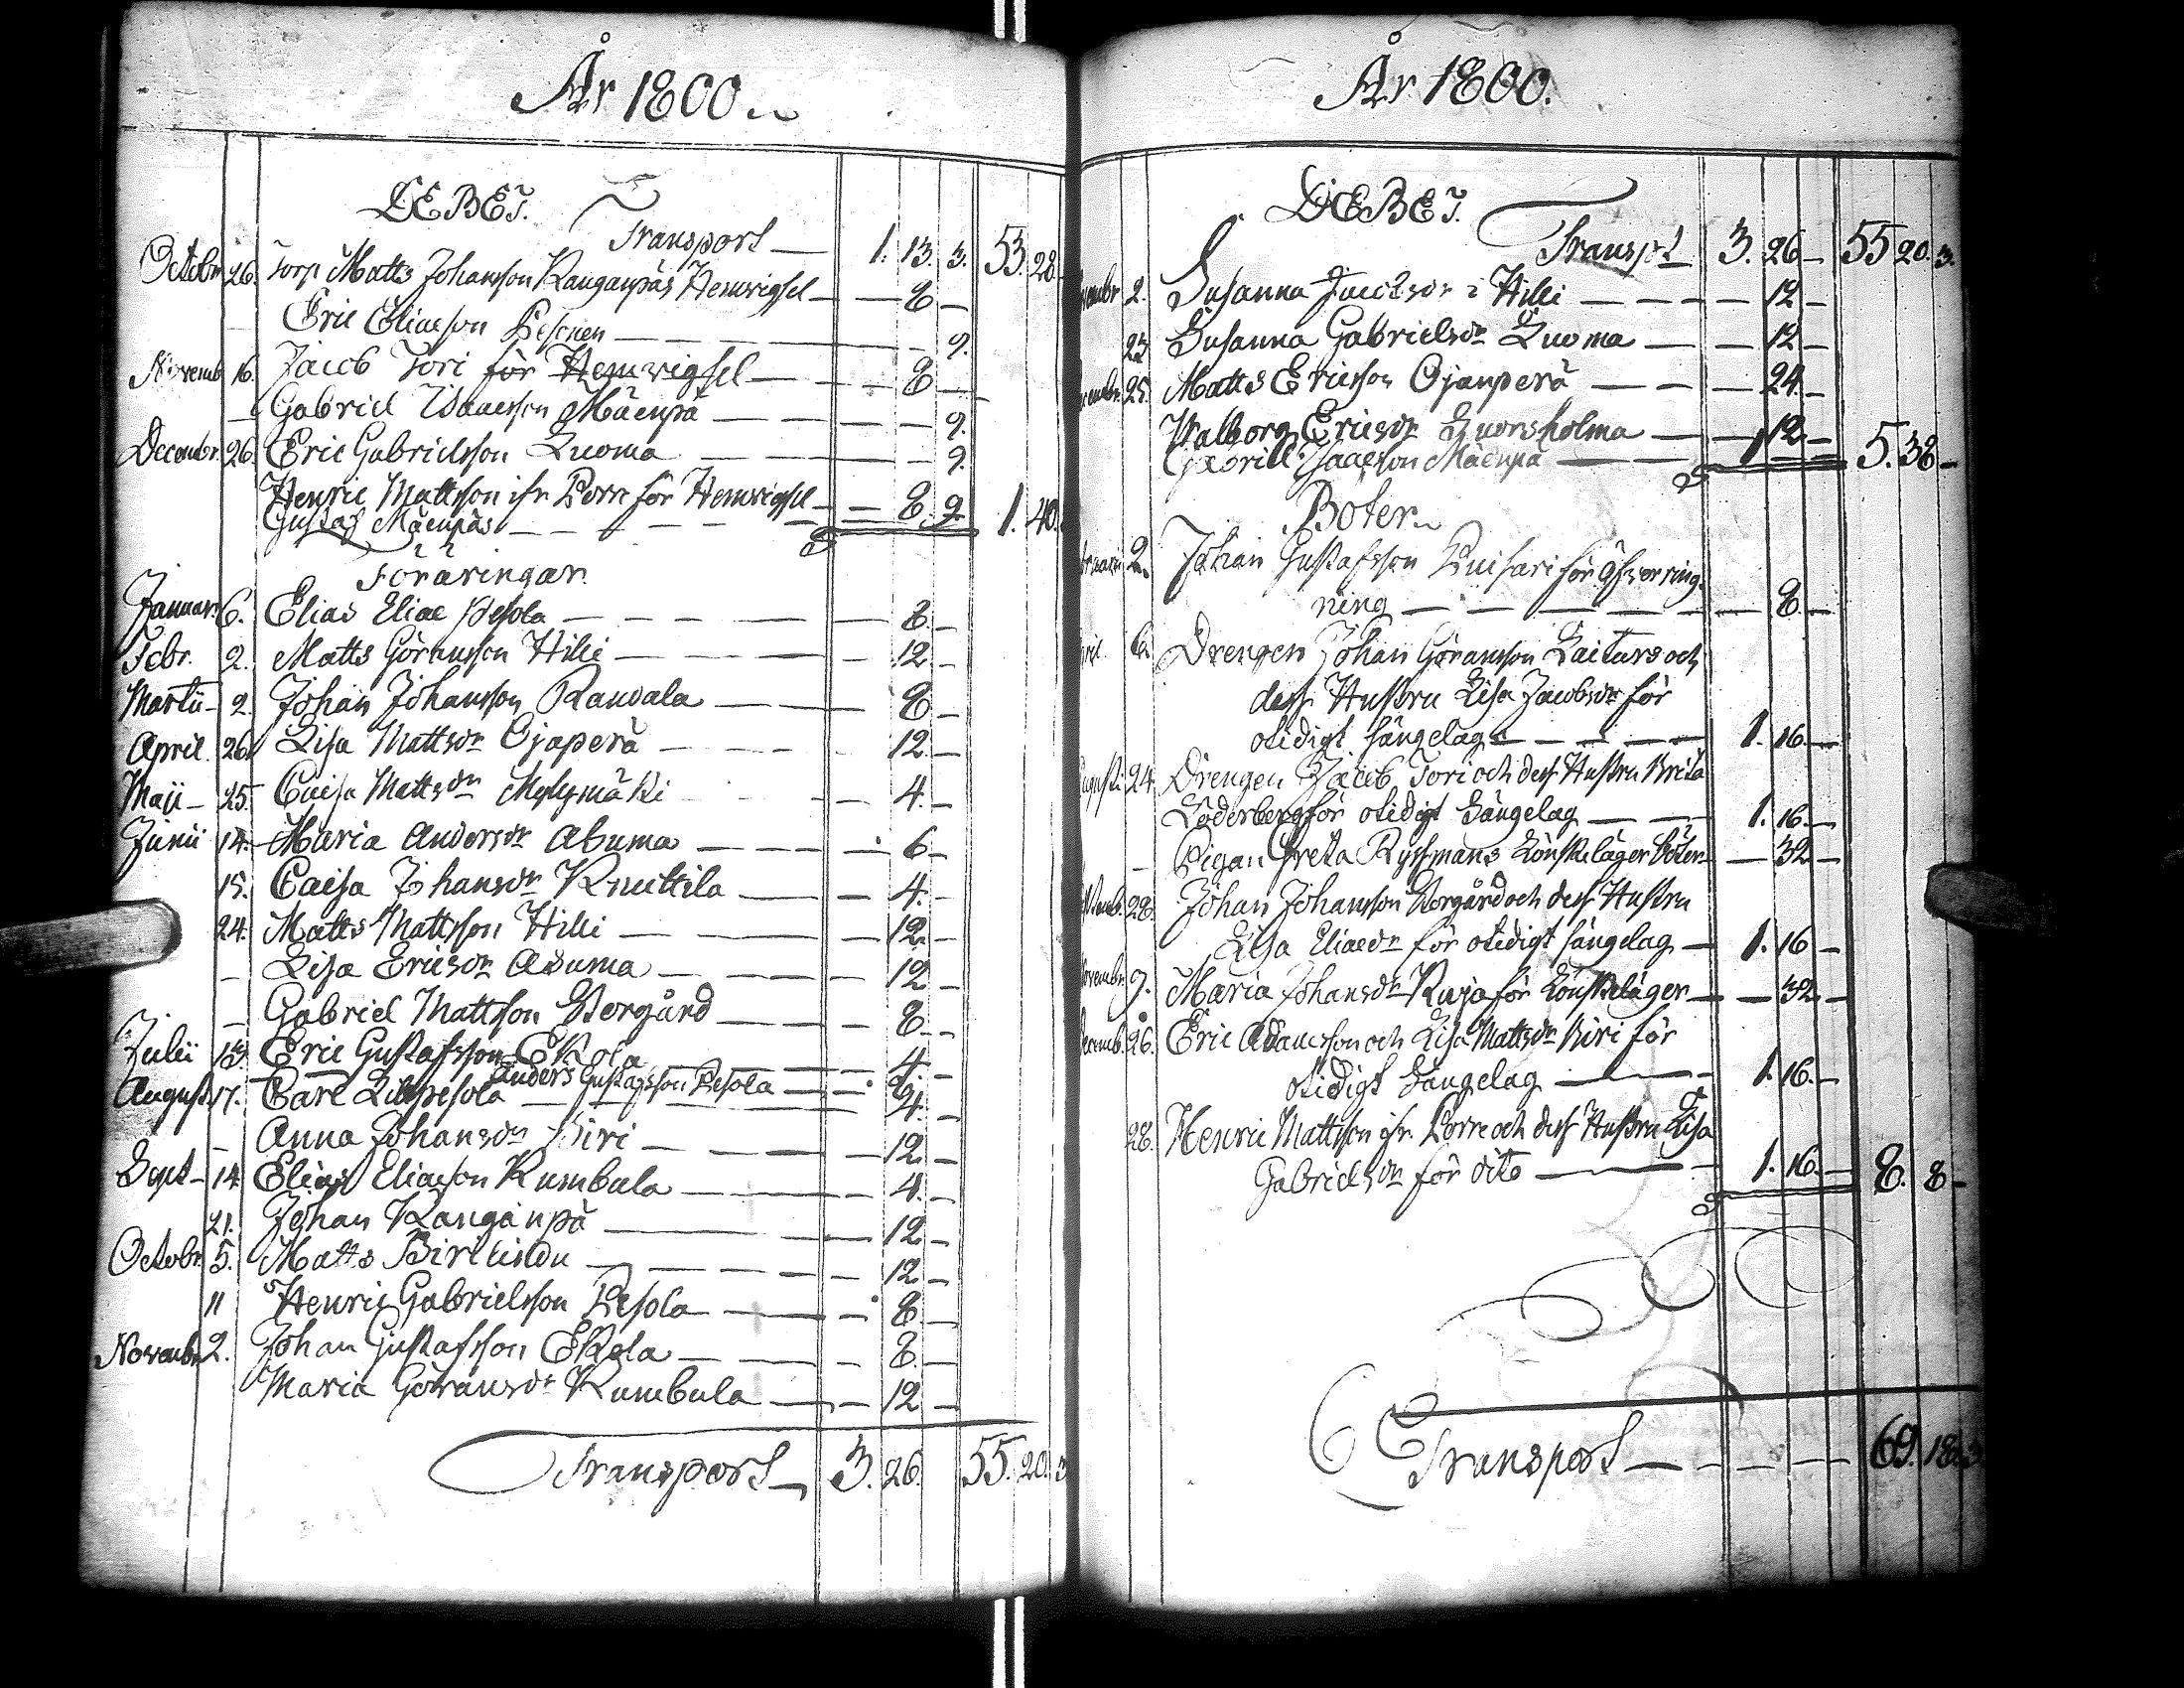 År 1800
DEBET.
Transport — 1. 13. 3. 53. 28.
Octobr. 26. Torp Matts Johansson Kanganpäs Hemvigsel — 8 —
Eric Eliaesson Pesonen — 9.
Novemb. 16. Jacob Tori för Hemvigsel — 8 —
— Gabriel Isaacsson Mäenpä — 9.
Decembr. 26. Eric Gabrielsson Luoma — 9.
Henric Mattsson ifr. Porre för Hemvigsel — 8. 9.
Gustaf Mäenpäs — 1. 40.
Föräringar.
Januar. 6. Elias Eliae Pesola — 8. —
Febr. 2. Matts Göransson Hilli — 12 —
Martii — 2. Johan Johansson Randala — 8 —
April. 26. Lisa Mattsdr Ojaperä — 12. —
Maji — 25. Caisa Mattsdr Mylymäki — 4. —
Junii 14. Maria Andersdr Asuma — 6 —
15. Caisa Johansdr Knuttila — 4. —
24. Matts Mattsson Hilli — 12. —
— Lisa Ericsdr Asuma — 12 —
— Gabriel Mattsson Storgård — 8. —
Julii 13. Eric Gustafsson Ekola — 4 —
Anders Gustafsson Pesola — 6
August. 17. Carl Lillpesola — 4. —
— Anna Johansdr Siri — 12. —
Sept — 14 Elias Eliaesson Kumbula — 4. —
21. Johan Kanganpä — 12 —
Octobr. 5. Matts — 12 —
11 Henric Gabrielsson Pesola — 8 —
Novembr. 2. Johan Gustafsson Ekola — 8. —
Maria Göransdr Kumbula — 12 —
Transport — 3. 26. 55. 20. 3
År 1800.
DEBET.
Transpt — 3. 26 — 55 20. 3.
embr 2. Susanna Jacobsdr i Hilli — 12 —
23 Susanna Gabrielsdr Luoma — 12 —
cembr. 25. Matts Ericsson Ojanperä — 24. —
Walborg Ericsdr Luorsholma — 12 —
Gabriel Isaacsson Mäenpä — 5. 38 —
Böter
bruarii 2. Johan Gustafsson för
ning — 8 —
pril. 6. Drengen Johan Göransson Laitars och
dess Hustru Lisa Jacobsdr för
otidigt sängelag — 1. 16. —
ugusti 24. Drengen Jacob Tori och dess Hustru Brita
Söderberg för otidigt Sängelag — 1. 16. —
— Pigan Greta Ryssmans Lönskeläger böter — 32 —
ptemb. 28. Johan Johansson Storgård och dess Hustru
Lisa Eliaedr för otidigt sängelag — 1. 16 —
ovembr. 9. Maria Johansdr Kuja för Lönskeläger — 32 —
ecemb. 26. Eric Adamsson och Lisa Mattsdr Siri för
otidigt Sängelag — 1. 16. —
28. Henric Mattsson ifr. Porre och dess Hustru Lisa
Gabrielsdr för dito — 1. 16. — 8. 8 —
Transport — 69. 18. 3.